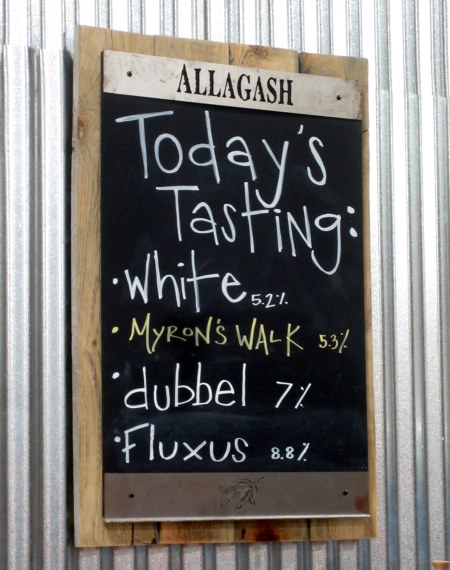 ALLAGASH
Today's
Tasting:
• White 5.2%
• MYRON'S WALK 5.3%
• dubbel 7%
• Fluxus 8.8%